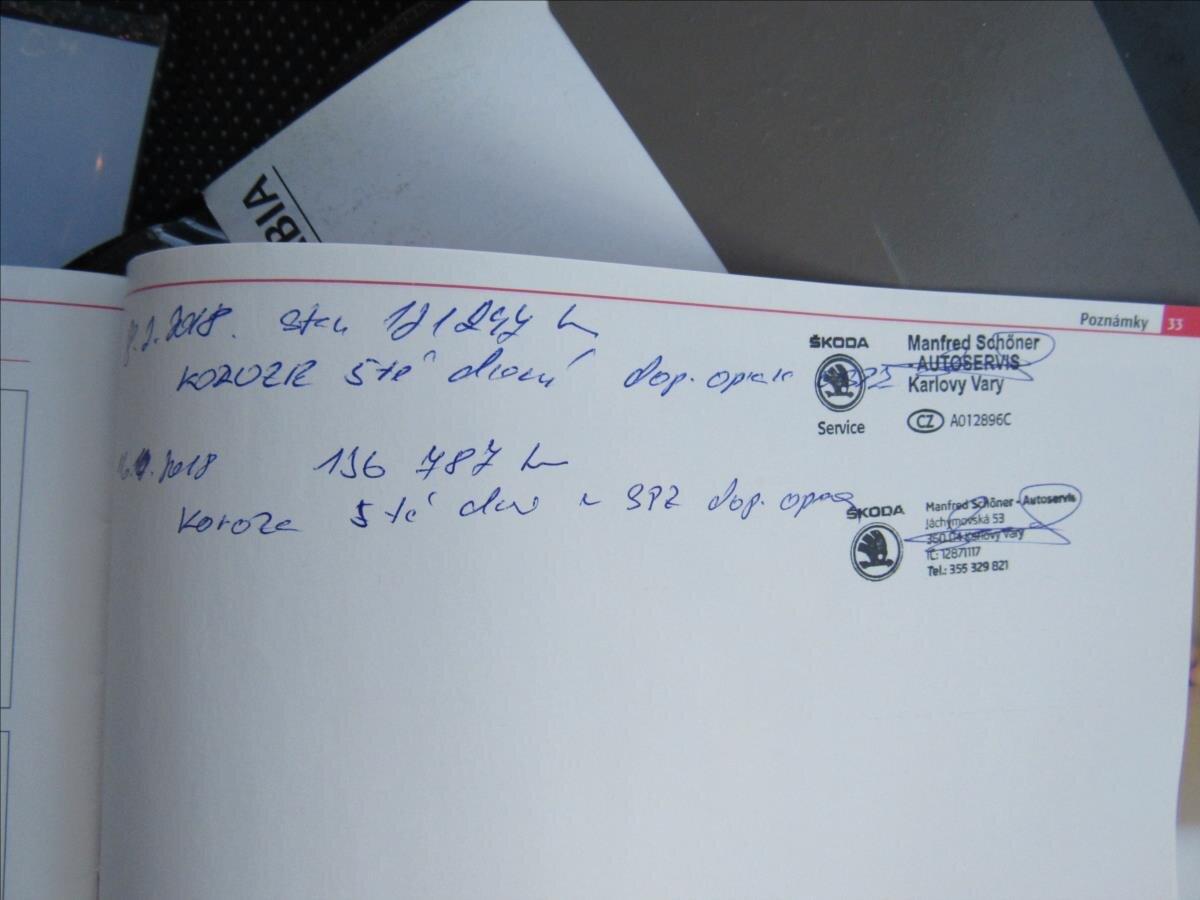 ABIA
Poznámky 33
.2.2018. stav 121247 km
KOROZE 5té dveří dop. oprava
ŠKODA
Service
Manfred Schöner
- AUTOSERVIS
Karlovy Vary
CZ A012896C
.2018 136 787 km
Koroze 5té dveř u SPZ dop. oprava
ŠKODA
Manfred Schöner - Autoservis
Jáchymovská 53
360 04 Karlovy Vary
IČ: 12871117
Tel.: 355 329 821